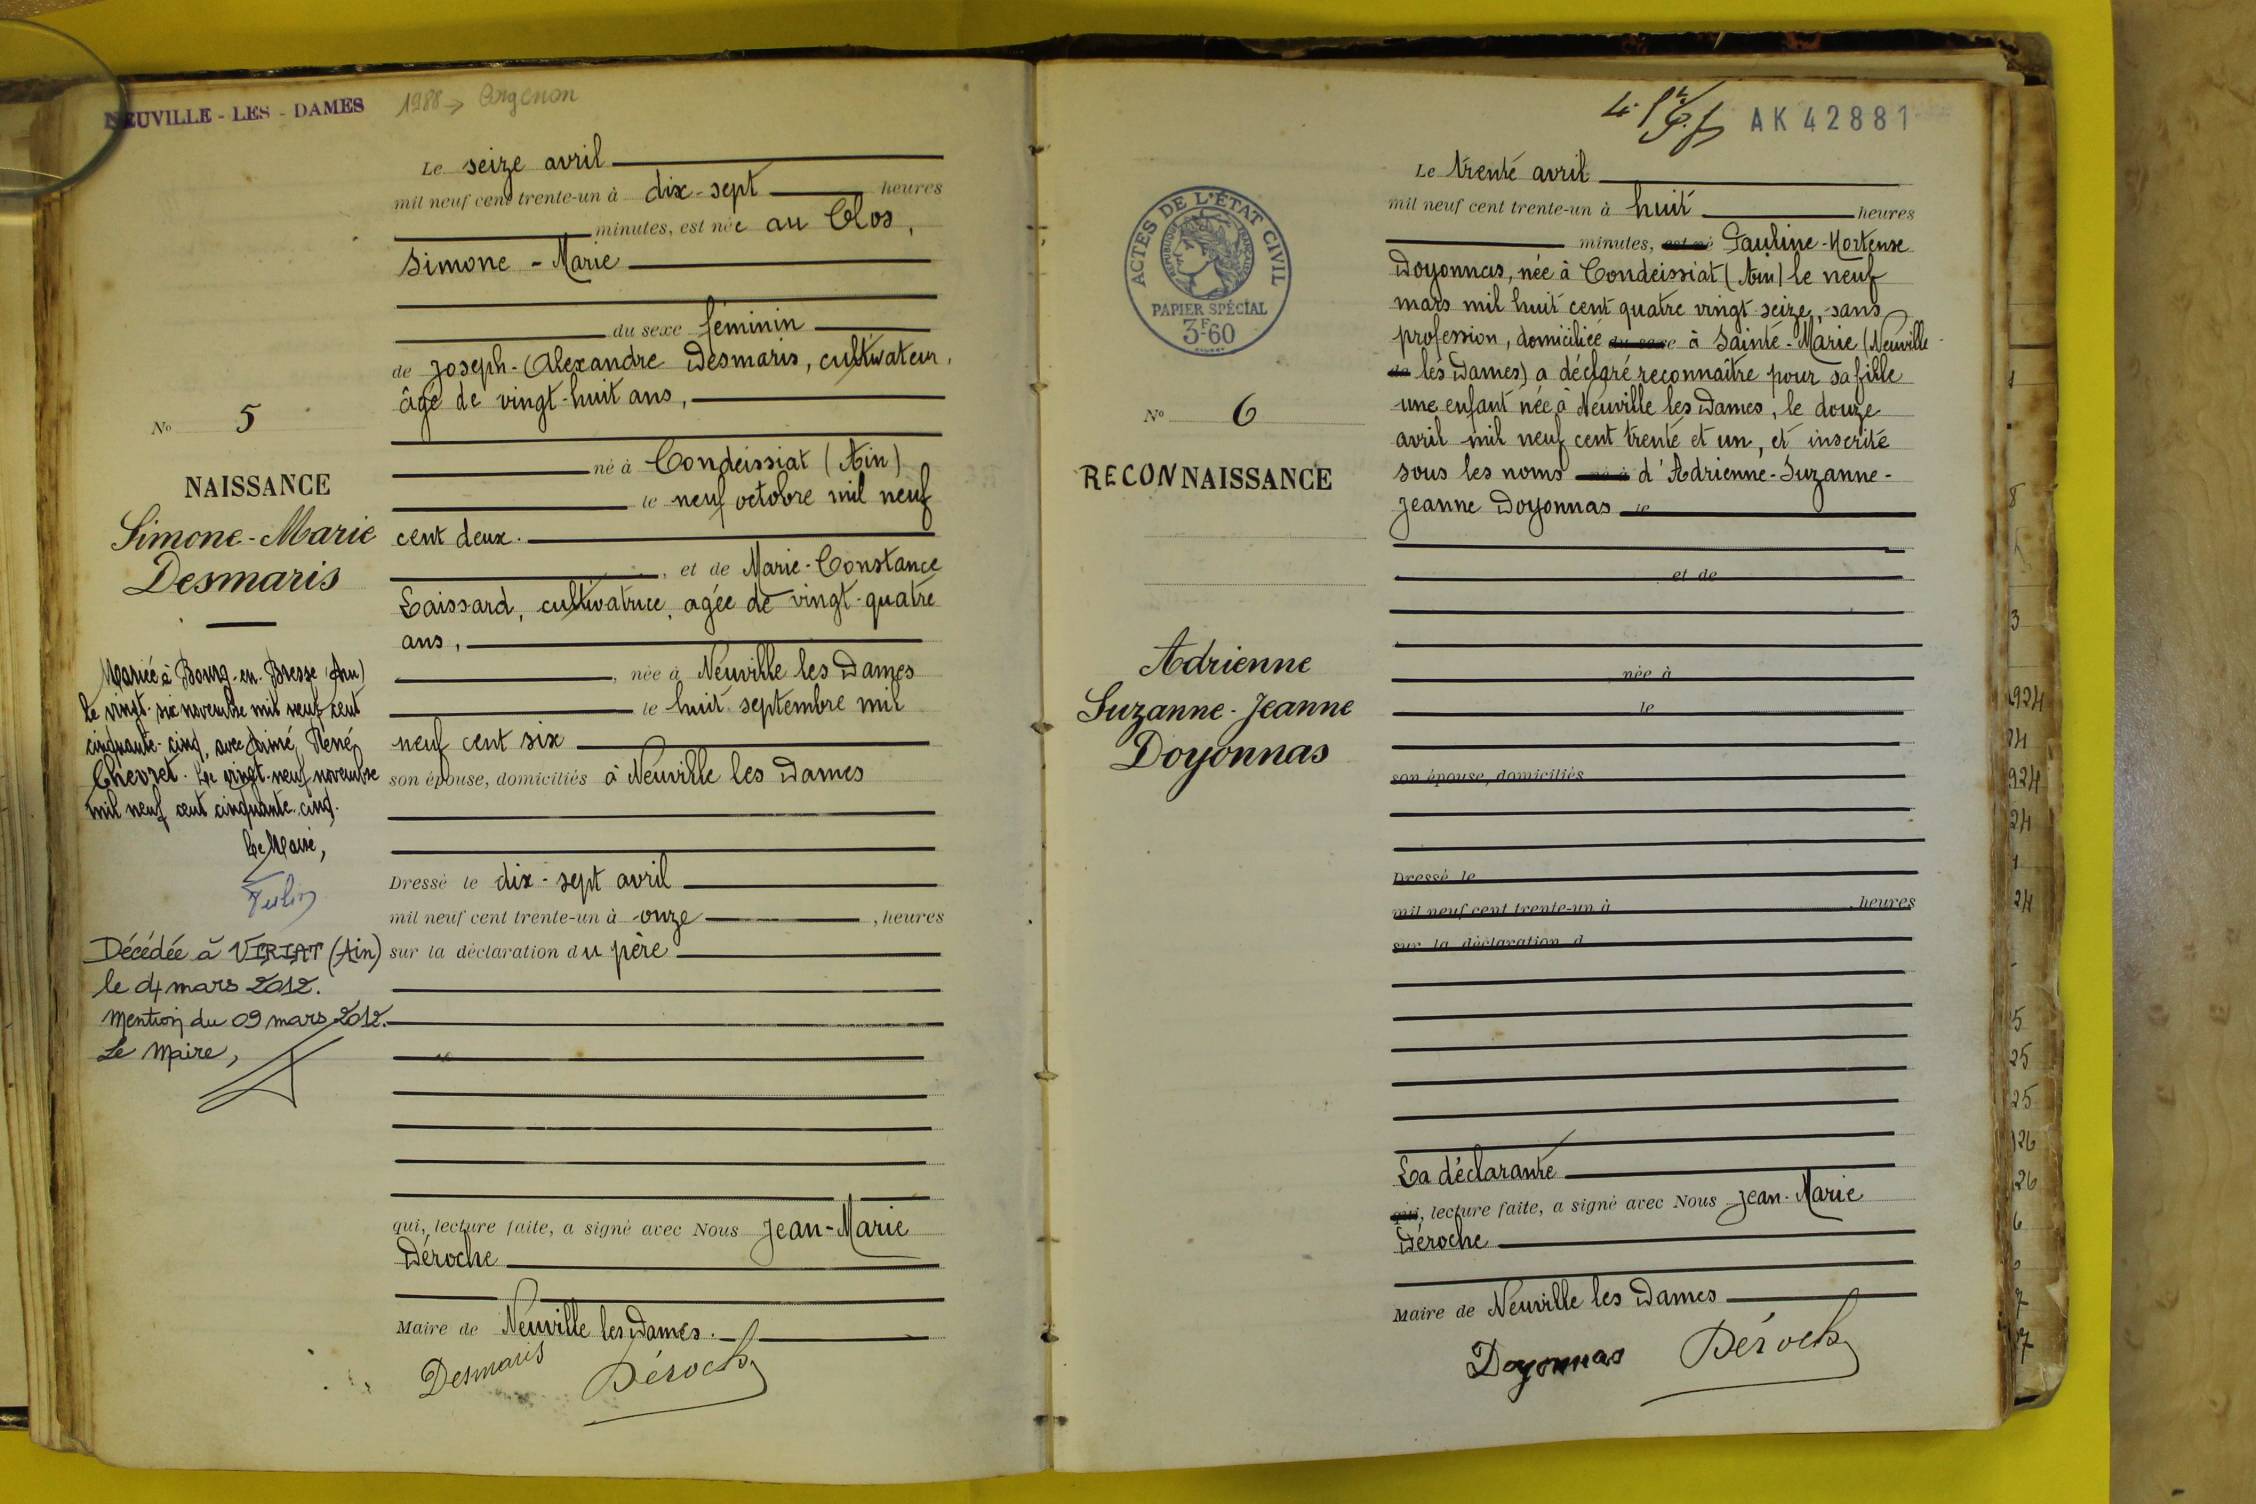 NEUVILLE - LES - DAMES
1988 →
Le seize avril
mil neuf cent trente-un à dix-sept heures
minutes, est née au Clos,
Simone - Marie
du sexe féminin
de Joseph-Alexandre Desmaris, cultivateur,
âgé de vingt-huit ans,
né à Condeissiat (Ain)
le neuf octobre mil neuf
cent deux.
, et de Marie-Constance
Laissard, cultivatrice, agée de vingt-quatre
ans,
, née à Neuville les Dames
le huit septembre mil
neuf cent six
son épouse, domiciliés à Neuville les Dames
Dressé le dix-sept avril
mil neuf cent trente-un à onze , heures
sur la déclaration du père
qui, lecture faite, a signé avec Nous Jean-Marie
Déroche
Maire de Neuville les Dames.
Desmaris Déroche
No 5
NAISSANCE
Simone-Marie
Desmaris
Mariée à Bourg-en-Bresse (Ain)
le vingt-six novembre mil neuf cent
cinquante-cinq, avec Aimé, René
Chevret. Le vingt-neuf novembre
mil neuf cent cinquante-cinq.
Le Maire,
Décédée à VIRIAT (Ain)
le 04 mars 2012.
Mention du 09 mars 2012.
Le Maire,
AK 42881
ACTES DE L'ÉTAT CIVIL
RÉPUBLIQUE FRANÇAISE
PAPIER SPÉCIAL
3F60
No 6
RECONNAISSANCE
Adrienne
Suzanne-Jeanne
Doyonnas
Le trente avril
mil neuf cent trente-un à huit heures
minutes, est né Pauline-Hortense
Doyonnas, née à Condeissiat (Ain) le neuf
mars mil huit cent quatre vingt seize, sans
profession, domiciliée du sexe à Sainte-Marie (Neuville-
de les Dames) a déclaré reconnaître pour sa fille
une enfant née à Neuville les Dames, le douze
avril mil neuf cent trente et un, et inscrite
sous les noms né à d'Adrienne-Suzanne-
Jeanne Doyonnas le
et de
née à
le
son épouse, domiciliés
Dressé le
mil neuf cent trente-un à , heures
sur la déclaration d
La déclarante
qui, lecture faite, a signé avec Nous Jean-Marie
Déroche
Maire de Neuville les Dames
Doyonnas Déroche